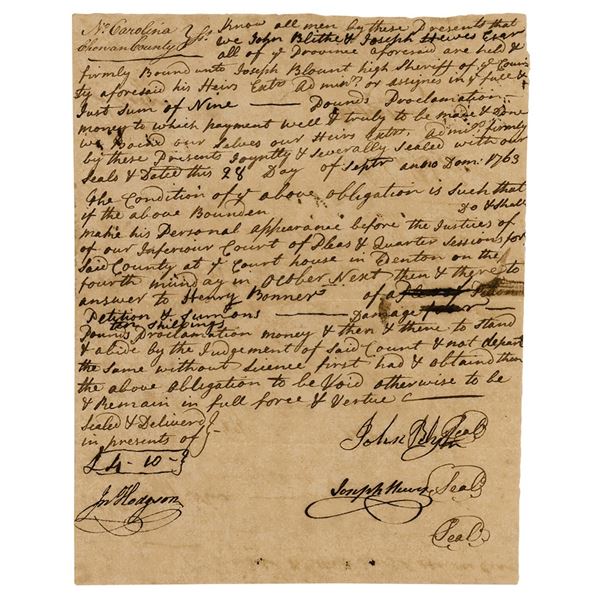 No. Carolina
Chowan County } Ss.
Know all men by these Presents that
we John Blithe & Joseph Hewes Esqr
all of ye Province aforesaid are held &
firmly Bound unto Joseph Blount high Sheriff of ye Coun
ty aforesaid his Heirs Extrs Adminrs or assignes in ye full &
Just Sum of Nine — Pounds Proclamation
money to which payment well & truly to be made & done
we Bound our Selves our Heirs Extrs. Adminrs firmly
by these Presents Joyntly & Severally Sealed with our
Seals & Dated this 28 Day of Septr anno Dom: 1763
The Condition of ye above obligation is Such that
if the above Bounden Do & Shall
make his Personal appearance before the Justices of
of our Inferiour Court of Pleas & Quarter Sessions for
Said County at ye Court house in Edenton on the
fourth munday in October Next then & there to
answer to Henry Bonner of a
Petition & Sumons — Damage
ten Shillings
Pounds Proclamation money & then & there to Stand
& abide by the Judgement of Said Court & not depart
the Same without Licence first had & obtaind then
the above Obligation to be Void otherwise to be
& Remain in full force & Vertue
Sealed & Deliverd
in presents of
£4-10-
John Blyth Seal
Jn Hodgson
Joseph Hewes Seal
Seal